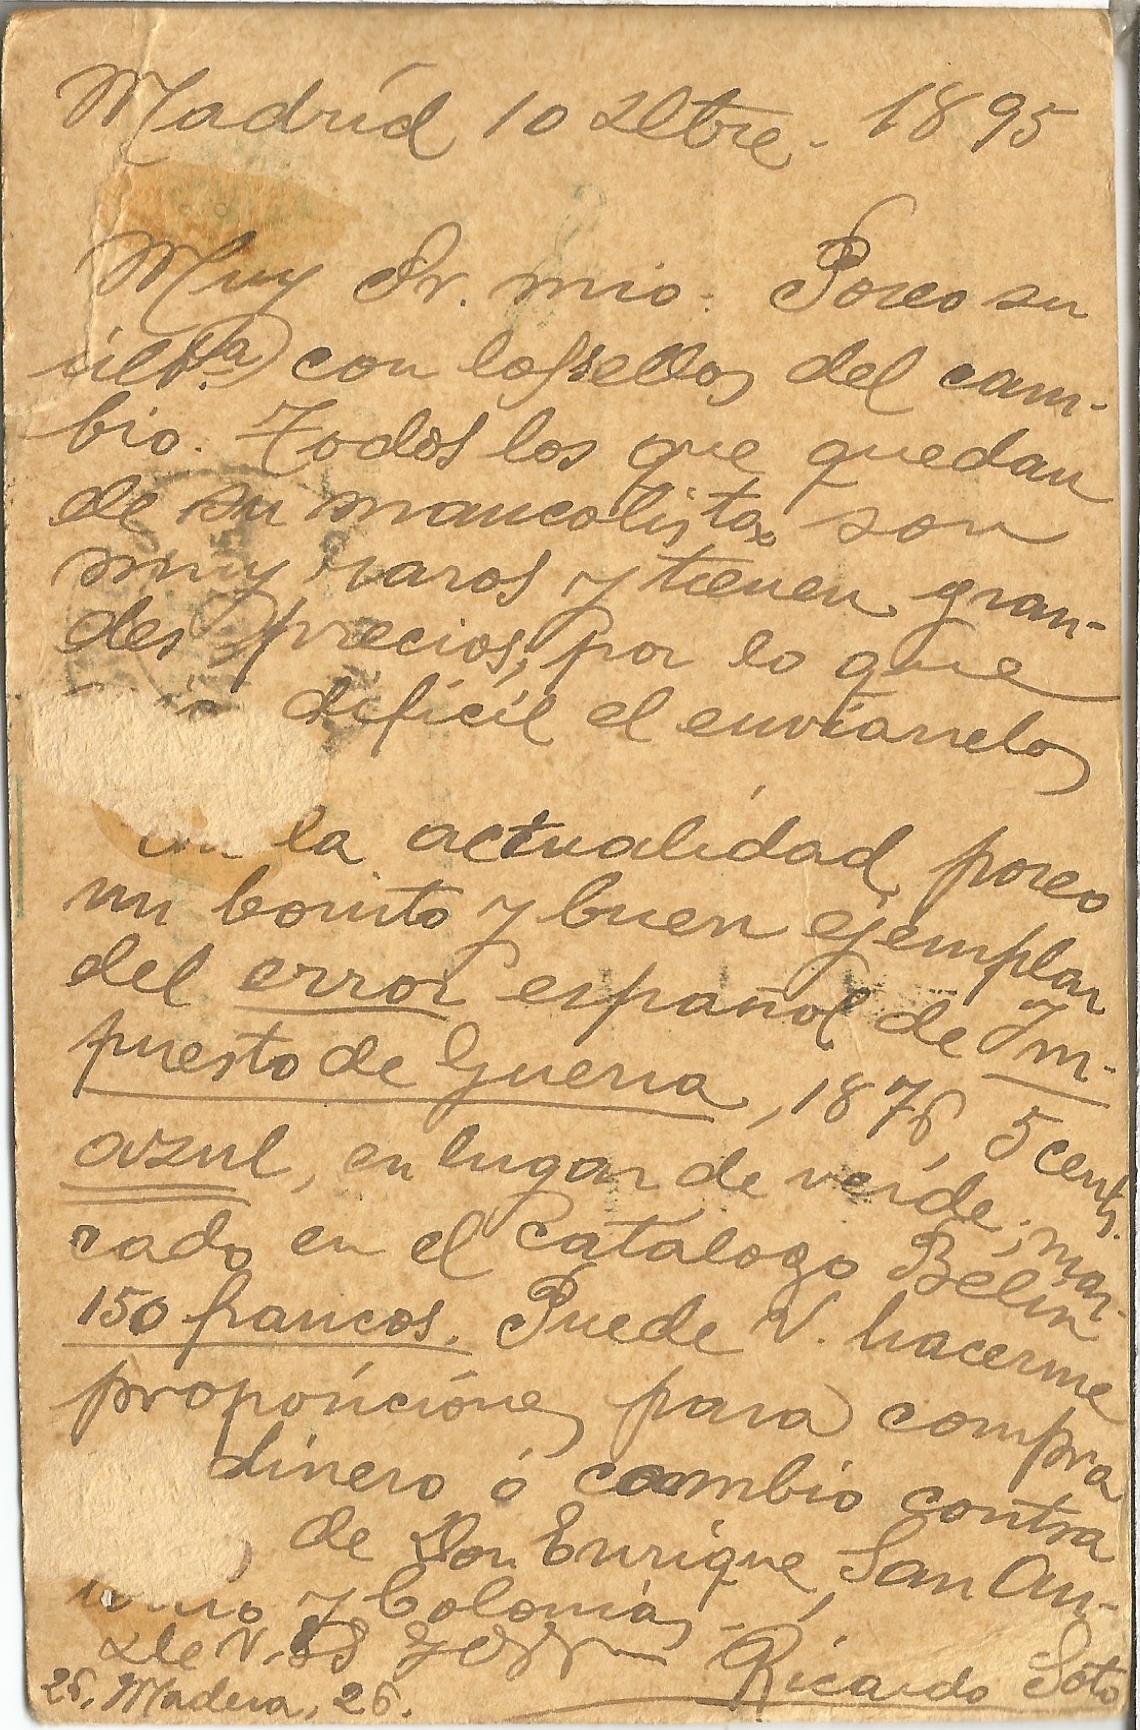 Madrid 10 Dbre. 1895
Muy Sr. mio: Poseo su
últª con los sellos del cam-
bio. Todos los que quedan
de su mancolista son
muy raros y tienen gran-
des precios, por lo que
difícil el enviarselos
la actualidad, poseo
un bonito y buen ejemplar
del error español de Im-
puesto de Guerra, 1876, 5 cents.
azul, en lugar de verde; mar-
cado en el catálogo Belin
150 francos. Puede V. hacerme
proposiciones para compra
dinero ó cambio contra
de Don Enrique, San Ma-
rino y Colonias.
De V. SS
Ricardo Soto
26, Madera, 26.